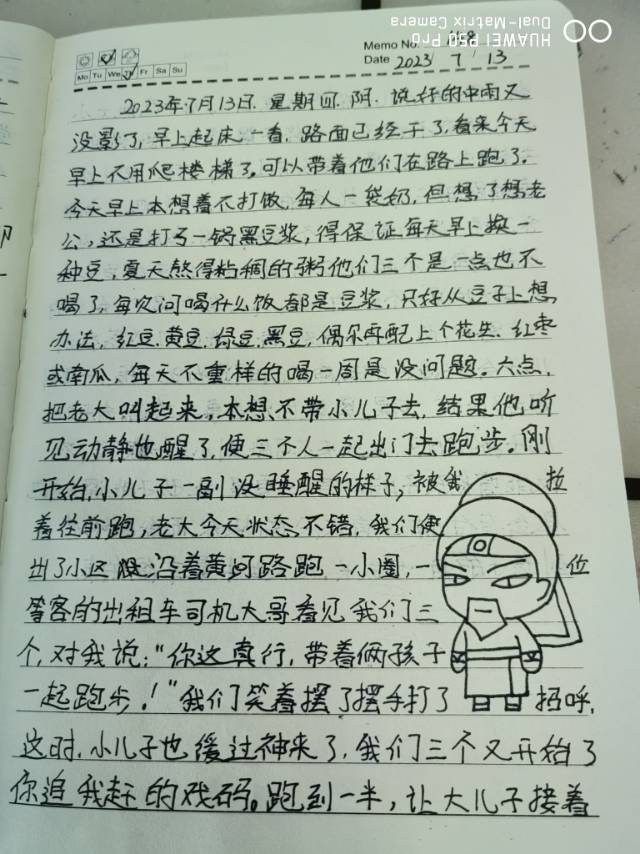 HUAWEI P50 Pro
Dual-Matrix Camera
Memo No.
Mo Tu We Fr Sa Su
Date 2023 / 7 / 13
2023年7月13日.星期四.阴.说好的中雨又
没影了,早上起床一看,路面已经干了,看来今天
早上不用爬楼梯了。可以带着他们在路上跑了。
今天早上本想着不打饭,每人一袋奶,但想了想老
公,还是打了一锅黑豆浆,得保证每天早上换一
种豆,夏天熬得粘稠的粥他们三个是一点也不
喝了,每次问喝什么饭都是豆浆,只好从豆子上想
办法,红豆.黄豆.绿豆.黑豆,偶尔再配上个花生.红枣
或南瓜,每天不重样的喝一周是没问题。六点,
把老大叫起来,本想不带小儿子去,结果他听
见动静也醒了,便三个人一起出门去跑步。刚
开始,小儿子一副没睡醒的样子,被我拉
着往前跑,老大今天状态不错,我们便
出了小区沿着黄河路跑一小圈,一位
等客的出租车司机大哥看见我们三
个,对我说:“你这真行,带着俩孩子
一起跑步!”我们笑着摆了摆手打了招呼,
这时,小儿子也缓过神来了,我们三个又开始了
你追我赶的戏码。跑到一半,让大儿子接着